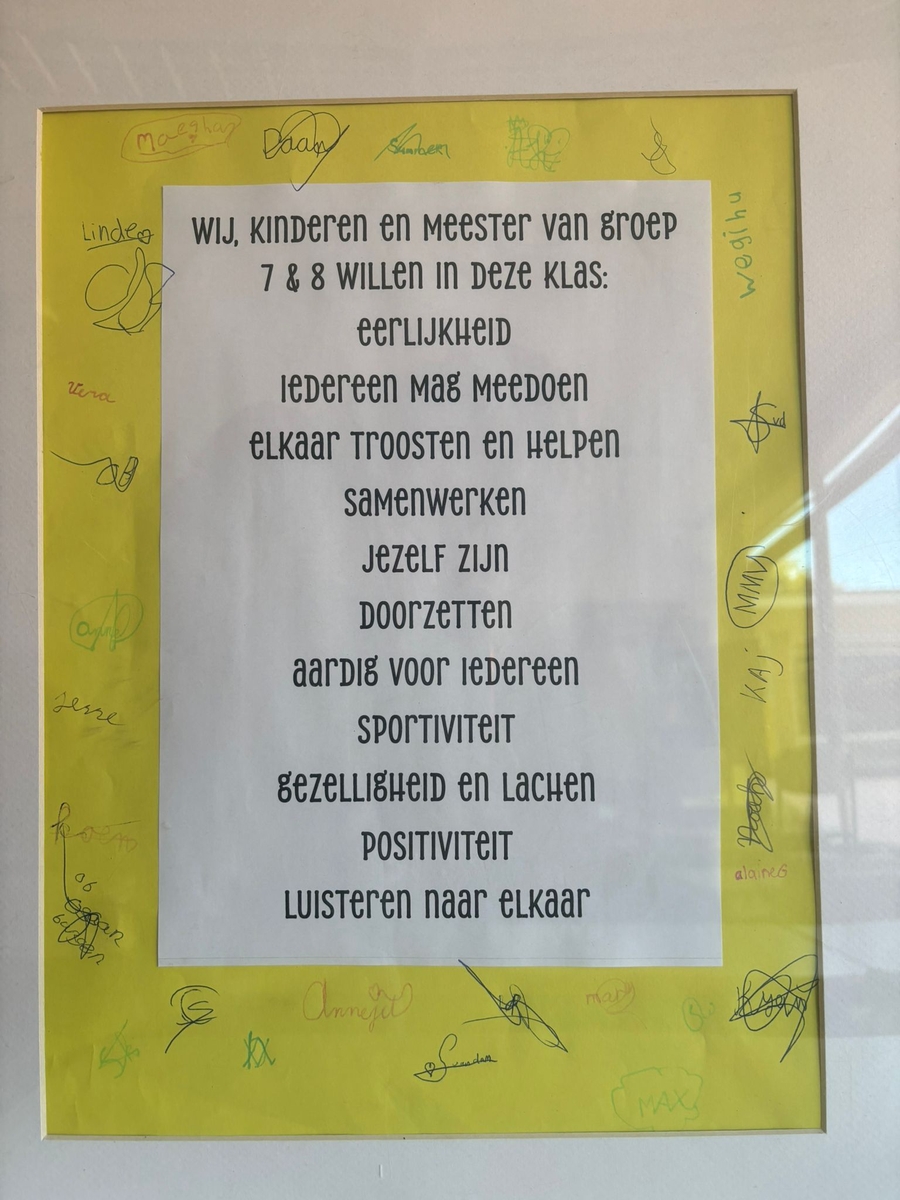 Maeghan
Daan
Linde
wegihu
WIJ, KINDEREN EN MEESTER VAN GROEP
7 & 8 WILLEN IN DEZE KLAS:
EERLIJKHEID
IEDEREEN MAG MEEDOEN
ELKAAR TROOSTEN EN HELPEN
SAMENWERKEN
JEZELF ZIJN
DOORZETTEN
AARDIG VOOR IEDEREEN
SPORTIVITEIT
GEZELLIGHEID EN LACHEN
POSITIVITEIT
LUISTEREN NAAR ELKAAR
Vera
Jesse
KAj
alaineG
MAX